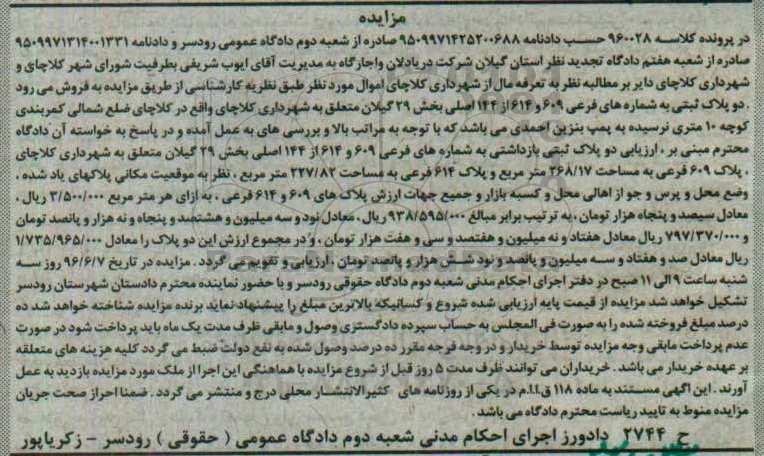 مزایده
در پرونده کلاسه ۹۶۰۰۲۸ حسب دادنامه ۹۵۰۹۹۷۱۴۲۵۲۰۰۶۸۸ صادره از شعبه دوم دادگاه عمومی رودسر و دادنامه ۹۵۰۹۹۷۱۳۱۴۰۰۱۳۳۱
صادره از شعبه هفتم دادگاه تجدید نظر استان گیلان شرکت دریادلان واجارگاه به مدیریت آقای ایوب شریفی بطرفیت شورای شهر کلاچای و
شهرداری کلاچای دایر بر مطالبه نظر به تعرفه مال از شهرداری کلاچای اموال مورد نظر طبق نظریه کارشناسی از طریق مزایده به فروش می رود
. دو پلاک ثبتی به شماره های فرعی ۶۰۹ و ۶۱۴ از ۱۴۴ اصلی بخش ۲۹ گیلان متعلق به شهرداری کلاچای واقع در کلاچای ضلع شمالی کمربندی
کوچه ۱۰ متری نرسیده به پمپ بنزین احمدی می باشد که با توجه به مراتب بالا و بررسی های به عمل آمده و در پاسخ به خواسته آن دادگاه
محترم مبنی بر ، ارزیابی دو پلاک ثبتی بازداشتی به شماره های فرعی ۶۰۹ و ۶۱۴ از ۱۴۴ اصلی بخش ۲۹ گیلان متعلق به شهرداری کلاچای
، پلاک ۶۰۹ فرعی به مساحت ۲۶۸/۱۷ متر مربع و پلاک ۶۱۴ فرعی به مساحت ۲۲۷/۸۲ متر مربع ، نظر به موقعیت مکانی پلاکهای یاد شده ،
وضع محل و پرس و جو از اهالی محل و کسبه بازار و جمیع جهات ارزش پلاک های ۶۰۹ و ۶۱۴ فرعی ، به ازای هر متر مربع ۳/۵۰۰/۰۰۰ ریال ،
معادل سیصد و پنجاه هزار تومان ، به ترتیب برابر مبالغ ۹۳۸/۵۹۵/۰۰۰ ریال ، معادل نود و سه میلیون و هشتصد و پنجاه و نه هزار و پانصد تومان
و ۷۹۷/۳۷۰/۰۰۰ ریال معادل هفتاد و نه میلیون و هفتصد و سی و هفت هزار تومان ، و در مجموع ارزش این دو پلاک را معادل ۱/۷۳۵/۹۶۵/۰۰۰
ریال معادل صد و هفتاد و سه میلیون و پانصد و نود شش هزار و پانصد تومان ، ارزیابی و تقویم می گردد . مزایده در تاریخ ۹۶/۶/۷ روز سه
شنبه ساعت ۹ الی ۱۱ صبح در دفتر اجرای احکام مدنی شعبه دوم دادگاه حقوقی رودسر و با حضور نماینده محترم دادستان شهرستان رودسر
تشکیل خواهد شد مزایده از قیمت پایه ارزیابی شده شروع و کسانیکه بالاترین مبلغ را پیشنهاد نماید برنده مزایده شناخته خواهد شد ده
درصد مبلغ فروخته شده را به صورت فی المجلس به حساب سپرده دادگستری وصول و مابقی ظرف مدت یک ماه باید پرداخت شود در صورت
عدم پرداخت مابقی وجه مزایده توسط خریدار و در وجه فرجه مقرر ده درصد وصول شده به نفع دولت ضبط می گردد کلیه هزینه های متعلقه
بر عهده خریدار می باشد . خریداران می توانند ظرف مدت ۵ روز قبل از شروع مزایده با هماهنگی این اجرا از ملک مورد مزایده بازدید به عمل
آورند . این آگهی مستند به ماده ۱۱۸ ق.ا.ا.م در یکی از روزنامه های کثیرالانتشار محلی درج و منتشر می گردد . ضمنا احراز صحت جریان
مزایده منوط به تایید ریاست محترم دادگاه می باشد .
ح ۲۷۴۴ دادورز اجرای احکام مدنی شعبه دوم دادگاه عمومی ( حقوقی ) رودسر - زکریاپور